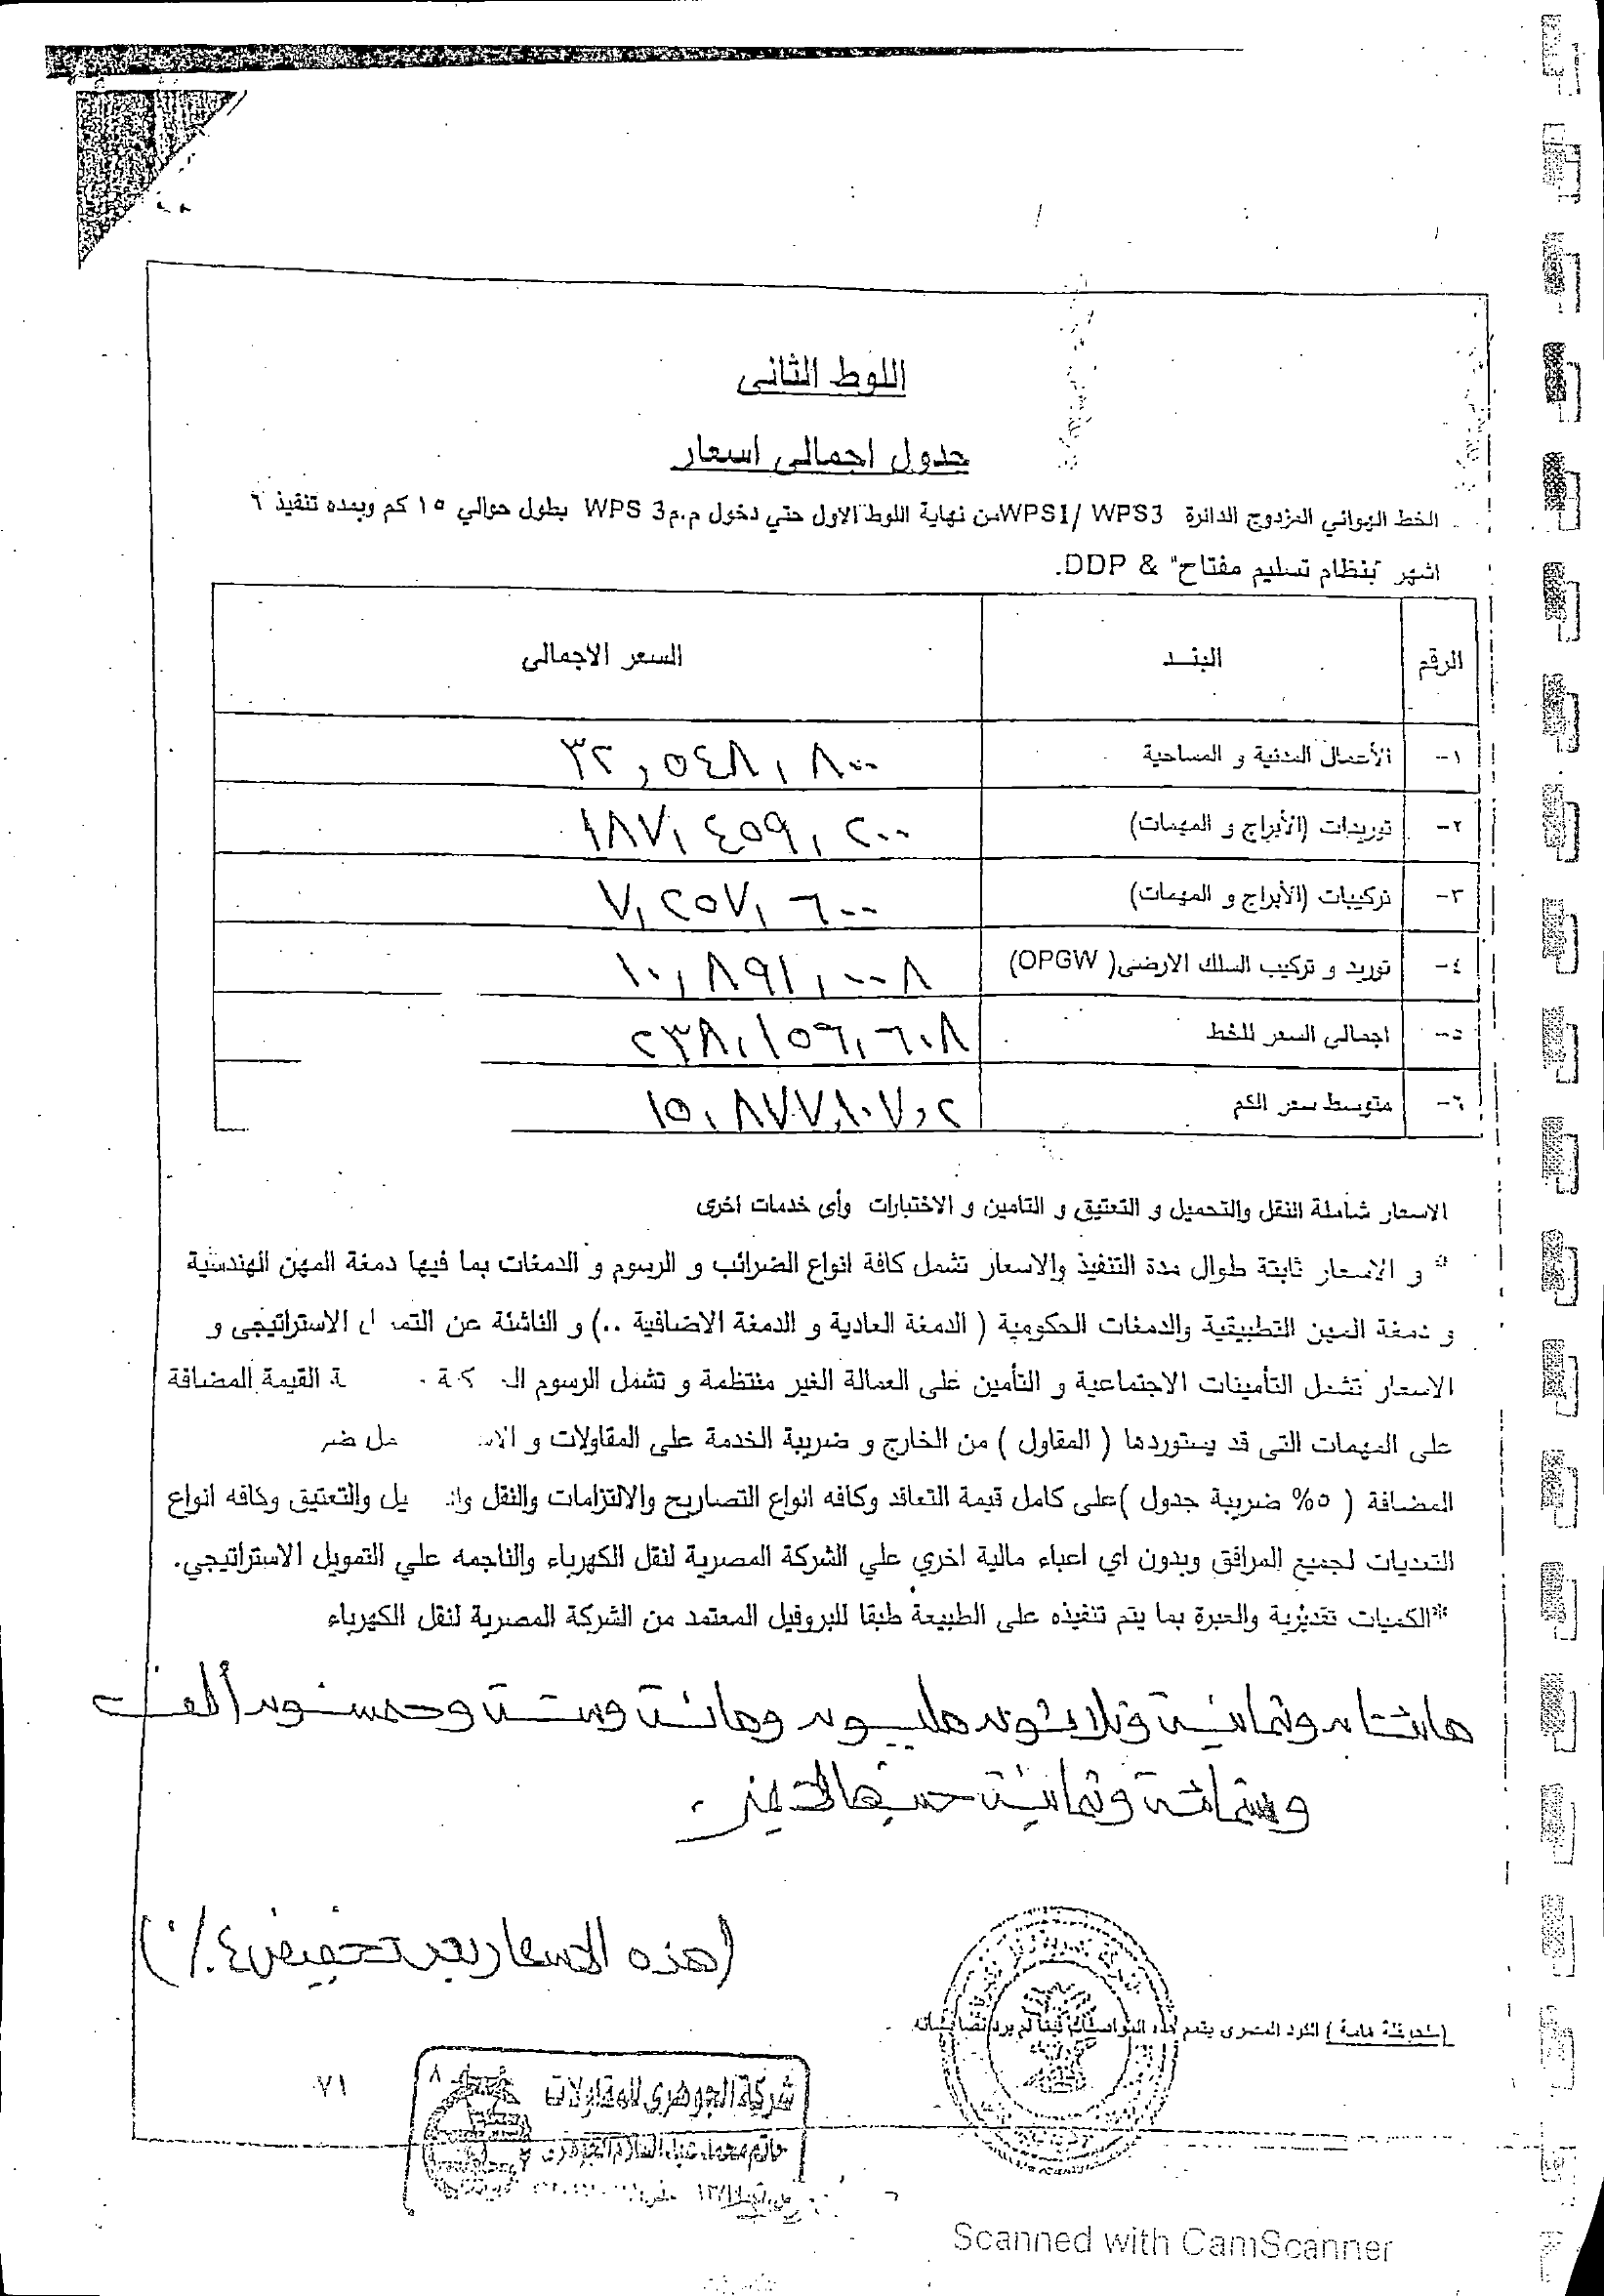 اللوط الثانى
جدول اجمالى اسعار
الخط الهوائي المزدوج الدائرة WPS1/ WPS3 من نهاية اللوط الاول حتي دخول م.م WPS 3 بطول حوالي ١٥ كم وبمده تنفيذ ٦
اشهر "بنظام تسليم مفتاح" & DDP.
الرقم البنــد السعر الاجمالى
١- الأعمال المدنية و المساحية ٣٢,٥٤٨,٨٠٠
٢- توريدات (الأبراج و المهمات) ١٨٧,٤٥٩,٢٠٠
٣- تركيبات (الأبراج و المهمات) ٧,٢٥٧,٦٠٠
٤- توريد و تركيب السلك الارضى( OPGW) ١٠,٨٩١,٠٠٨
٥- اجمالى السعر للخط ٢٣٨,١٥٦,٦٠٨
٦- متوسط سعر الكم ١٥,٨٧٧,١٠٧,٢
الاسعار شاملة النقل والتحميل و التعتيق و التامين و الاختبارات وأى خدمات اخرى
* و الاسعار ثابتة طوال مدة التنفيذ والاسعار تشمل كافة انواع الضرائب و الرسوم و الدمغات بما فيها دمغة المهن الهندسية
و دمغة المهن التطبيقية والدمغات الحكومية ( الدمغة العادية و الدمغة الاضافية ..) و الناشئة عن الاستراتيجى و
الاسعار تشمل التأمينات الاجتماعية و التأمين على العمالة الغير منتظمة و تشمل الرسوم القيمة المضافة
على المهمات التى قد يستوردها ( المقاول ) من الخارج و ضريبة الخدمة على المقاولات و
المضافة ( ٥% ضريبة جدول )على كامل قيمة التعاقد وكافه انواع التصاريح والالتزامات والنقل والتعتيق وكافه انواع
التعديات لجميع المرافق وبدون اي اعباء مالية اخري علي الشركة المصرية لنقل الكهرباء والناجمه علي التمويل الاستراتيجي.
*الكميات تقديرية والعبرة بما يتم تنفيذه على الطبيعة طبقا للبروفيل المعتمد من الشركة المصرية لنقل الكهرباء
مائتان وثمانية وثلاثون مليون ومائة وستة وخمسون ألف
وستمائة وثمانية جنيها لا غير.
(هذه الاسعار بعد تخفيض ٤٪)
(ملحوظة هامة ) الكود المصرى يتمم هذه المواصفات فيما لم يرد نصا بشأنه
٧١
شركة الجوهرى للمقاولات
حاتم محمد عبد السلام الجوهرى
Scanned with CamScanner